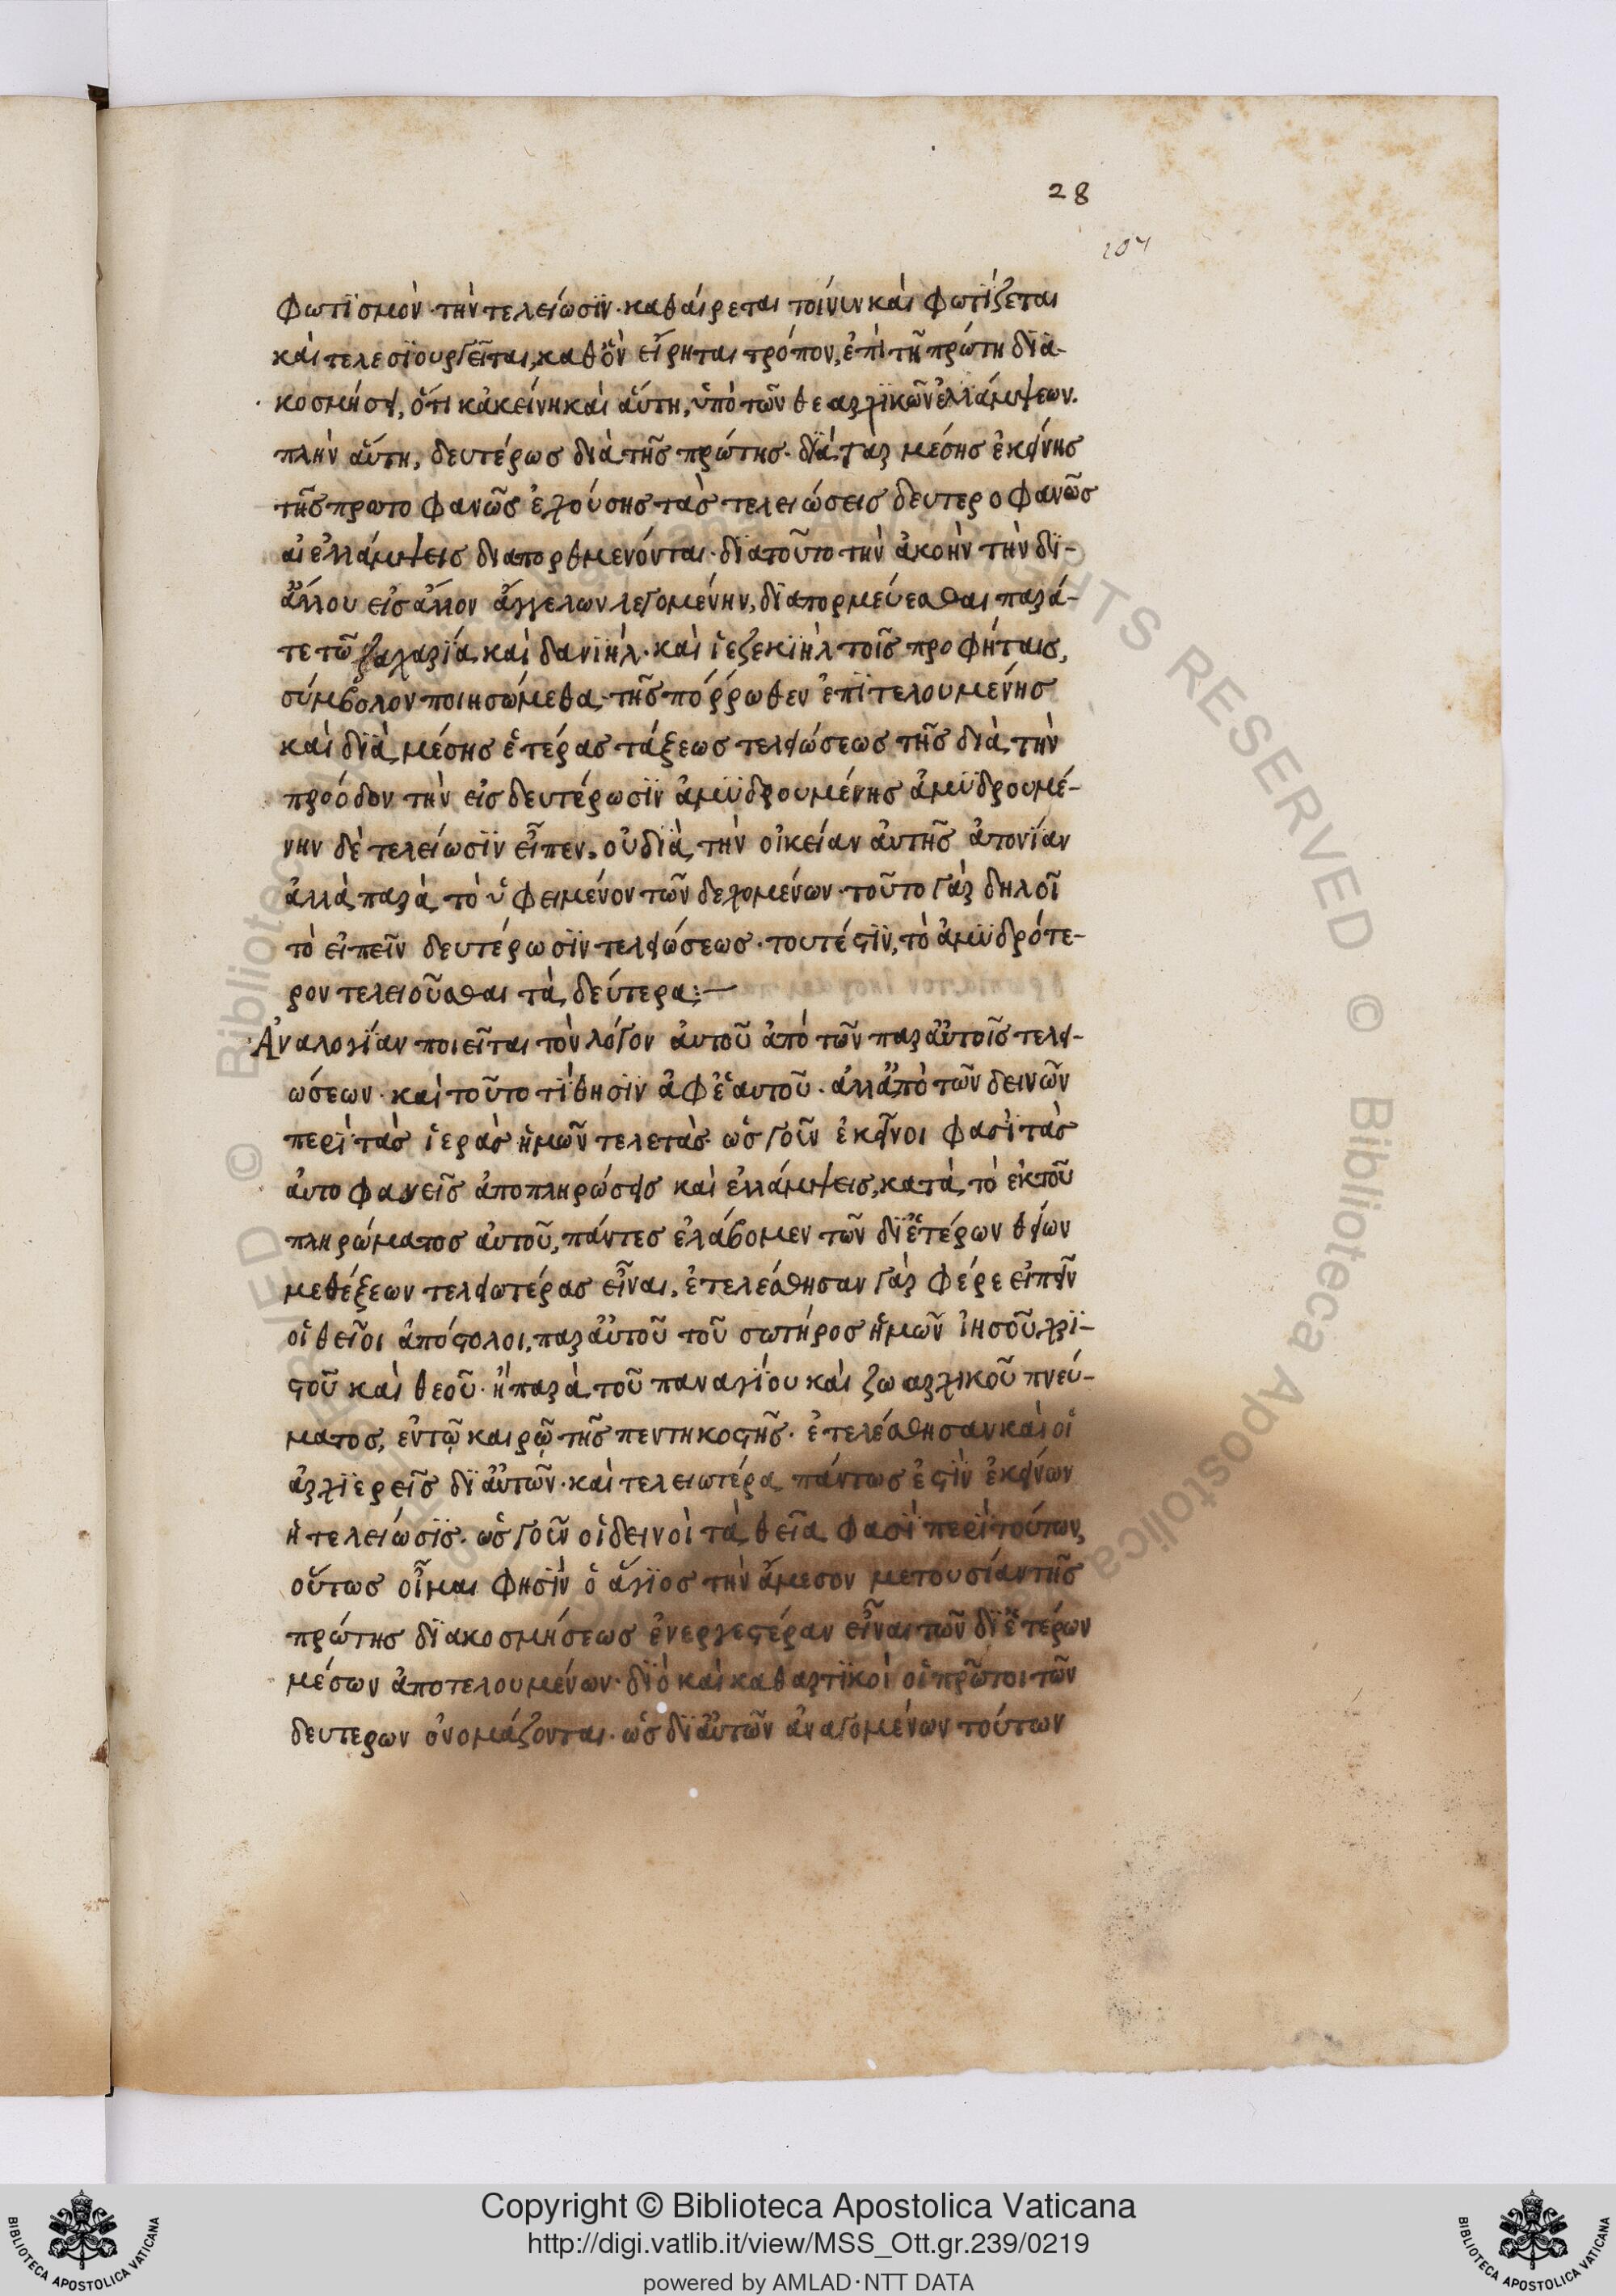 28
204
φωτϊσμὸν· τὴν τελείωσϊν· καθαίρεται τοίνυν καὶ φωτΐζεται
καὶ τελεσϊουργεῖται, καθ ὃν εἴρηται τρόπον, ἐπὶ τῇ πρώτη δϊα-
κοσμήσει, ὅτι κἀκείνη καὶ αὕτη, ὑπὸ τῶν θεαρχϊκῶν ἐλλάμψεων.
πλὴν αὕτη, δευτέρως διὰ τῆς πρώτης· δϊὰ γὰρ μέσης ἐκείνης
τῆς πρωτοφανῶς ἐχούσης τὰς τελειώσεις δευτεροφανῶς
αἱ ἐλλάμψεις διαπορθμενόνται· δϊατοῦτο τὴν ἀκοὴν τὴν δϊ-
ἄλλου εἰς ἄλλον ἄγγελων λεγομένην, δϊαπορμεύεσθαι παρά-
τε τῶ ζαχαρϊα καὶ δανϊὴλ· καὶ ϊεζεκϊὴλ τοῖς προφήταις,
σύμβολον ποιησώμεθα, τῆς πόρρωθεν ἐπϊτελουμένης
καὶ δϊὰ μέσης ἑτέρας τάξεως τελειώσεως τῆς διὰ τὴν
πρόοδον τὴν εἰς δευτέρωσϊν ἀμϋδρουμένης ἀμϋδρουμέ-
νην δὲ τελείωσϊν εἶπεν, οὐ δϊὰ τὴν οἰκείαν αὐτῆς ἀτονΐαν
ἀλλὰ παρὰ τὸ ὑφειμένον τῶν δεχομένων· τοῦτο γὰρ δηλοῖ
τὸ εἰπεῖν δευτέρωσϊν τελειώσεως· τουτέστϊν, τὸ ἀμϋδρότε-
ρον τελειοῦσθαι τὰ δεύτερα:—
Ἀναλογΐαν ποιεῖται τὸν λόγον αὐτοῦ ἀπὸ τῶν παρ αὐτοῖς τελει-
ώσεων· καὶ τοῦτο τΐθησϊν ἀφ ἑαυτοῦ· ἀλλ ἀπὸ τῶν δεινῶν
περὶ τὰς ἱερὰς ἡμῶν τελετὰς· ὡς γοῦν ἐκεῖνοι φασὶ τὰς
αὐτοφανεῖς ἀποπληρώσεις καὶ ἐλλάμψεις, κατὰ τὸ ἐκ τοῦ
πληρώματος αὐτοῦ, πάντες ἐλάβομεν τῶν δϊ ἑτέρων θείων
μεθέξεων τελειωτέρας εἶναι, ἐτελέσθησαν γὰρ φέρε εἰπεῖν
οἱ θεῖοι ἀπόστολοι, παρ αὐτοῦ τοῦ σωτῆρος ἡμῶν ἰησοῦ χρϊ-
στοῦ καὶ θεοῦ· ἢ παρὰ τοῦ παναγΐου καὶ ζωαρχικοῦ πνεύ-
ματος, ἐν τῷ καιρῷ τῆς πεντηκοστῆς· ἐτελέσθησαν καὶ οἱ
ἀρχϊερεῖς δϊ αὐτῶν· καὶ τελειωτέρα πάντως ἐστϊν ἐκείνων
ἡ τελείωσϊς· ὡς γοῦν οἱ δεινοὶ τὰ θεῖα φασὶ περὶ τούτων,
οὕτως οἶμαι φησϊν ὁ ἅγϊος τὴν ἄμεσον μετουσίαν τῆς
πρώτης δϊακοσμήσεως ἐνεργεστέραν εἶναι τῶν δϊ ἑτέρων
μέσων ἀποτελουμένων· δϊὸ καὶ καθαρτϊκοὶ οἱ πρῶτοι τῶν
δευτερων ὀνομάζονται· ὡς δϊ αὐτῶν ἀναγομένων τούτων
Copyright © Biblioteca Apostolica Vaticana
http://digi.vatlib.it/view/MSS_Ott.gr.239/0219
powered by AMLAD·NTT DATA
BIBLIOTECA APOSTOLICA VATICANA
BIBLIOTECA APOSTOLICA VATICANA